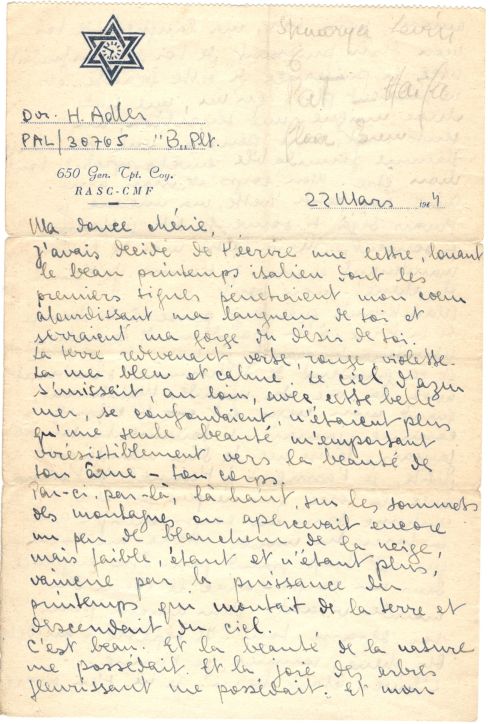 Dvr. H. Adler
PAL/30765 "B" Plt.
650 Gen. Tpt. Coy.
RASC-CMF
Haifa
22 Mars 1944
Ma douce chérie,
J'avais décidé de t'écrire une lettre, louant
le beau printemps italien dont les
premiers signes pénétraient mon cœur
alourdissant ma langueur de toi et
serraient ma gorge du désir de toi.
La terre redevenait verte, rouge, violette.
La mer bleu et calme. Le ciel d'azur
s'unissait, au loin, avec cette belle
mer, se confondaient, n'étaient plus
qu'une seule beauté m'emportant
irrésistiblement vers la beauté de
ton âme – ton corps.
Par-ci, par-là, là haut, sur les sommets
des montagnes on apercevait encore
un peu de blancheur de la neige,
mais faible, étant et n'étant plus,
vaincue par la puissance du
printemps qui montait de la terre et
descendait du ciel.
C'est beau. Et la beauté de la nature
me possédait. Et la joie des arbres
fleurissant me possédait. Et mon